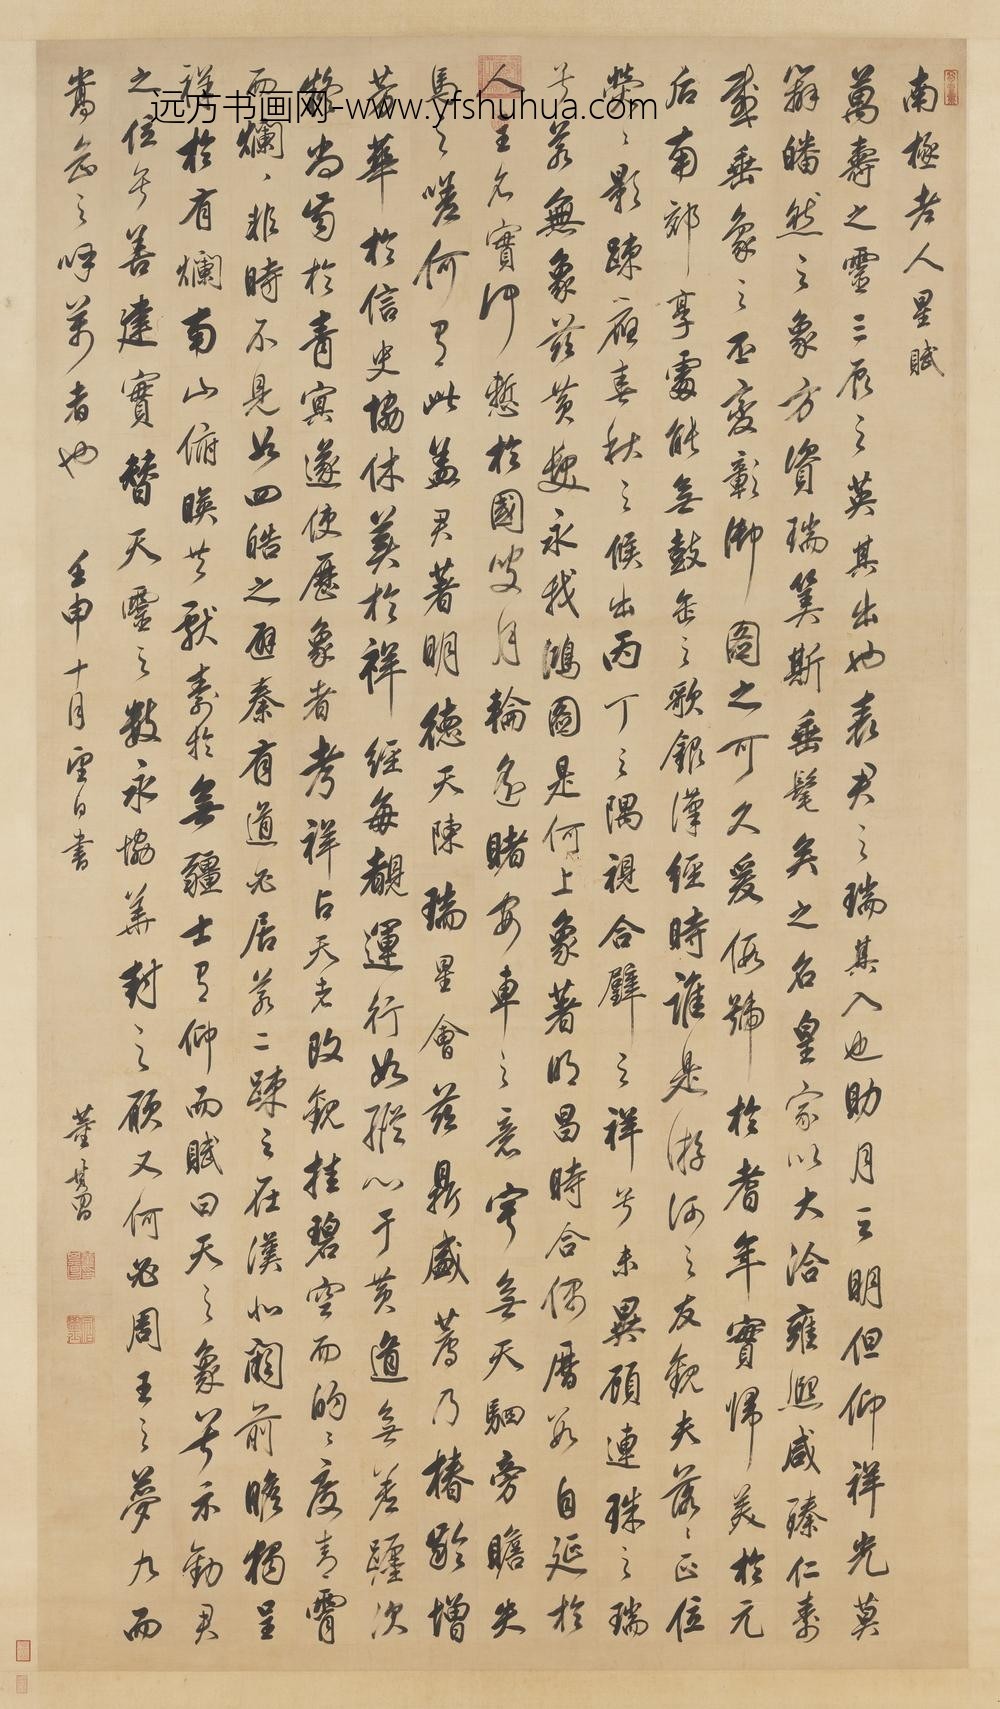 南極老人星賦
萬壽之靈三辰之英其出也表君之瑞其入也助月之明但仰祥光莫
辭皤然之象方資瑞筭斯垂髦矣之名皇家以大洽雍熙咸臻仁壽
感垂象之丕變彰御圖之可久爰假號於耆年實歸美於元
后南郊享處能無鼓缶之歌銀漢經時誰是游河之友觀夫落落正位
熒熒影疎應春秋之候出丙丁之隅視合璧之祥兮未異顧連珠之瑞
兮若無象茲黃髮永我鴻圖是何上象著明昌時合偶曆數自延於
人主名實仰慙於國叟月輪遙睹安車之意寧無天駟旁瞻失
馬之嗟何有此蓋君著明德天陳瑞星會茲鼎盛薦乃椿齡增
芳華於信史協休美於祥經每覩運行如縱心于黃道無差躔次
疑尚齒於青冥遂使歷象者考祥占天者改觀挂碧空而的的度青霄
而爛爛非時不見如四皓之避秦有道必居若二疎之在漢北闕前瞻獨呈
祥於有爛南山俯暎共獻壽於無疆士有仰而賦曰天之象兮示勸君
之位兮善建實替天靈之數永協華封之願又何必周王之夢九而
嵩岳之呼萬者也
壬申十月望日書
董其昌
远方书画网-www.yfshuhua.com